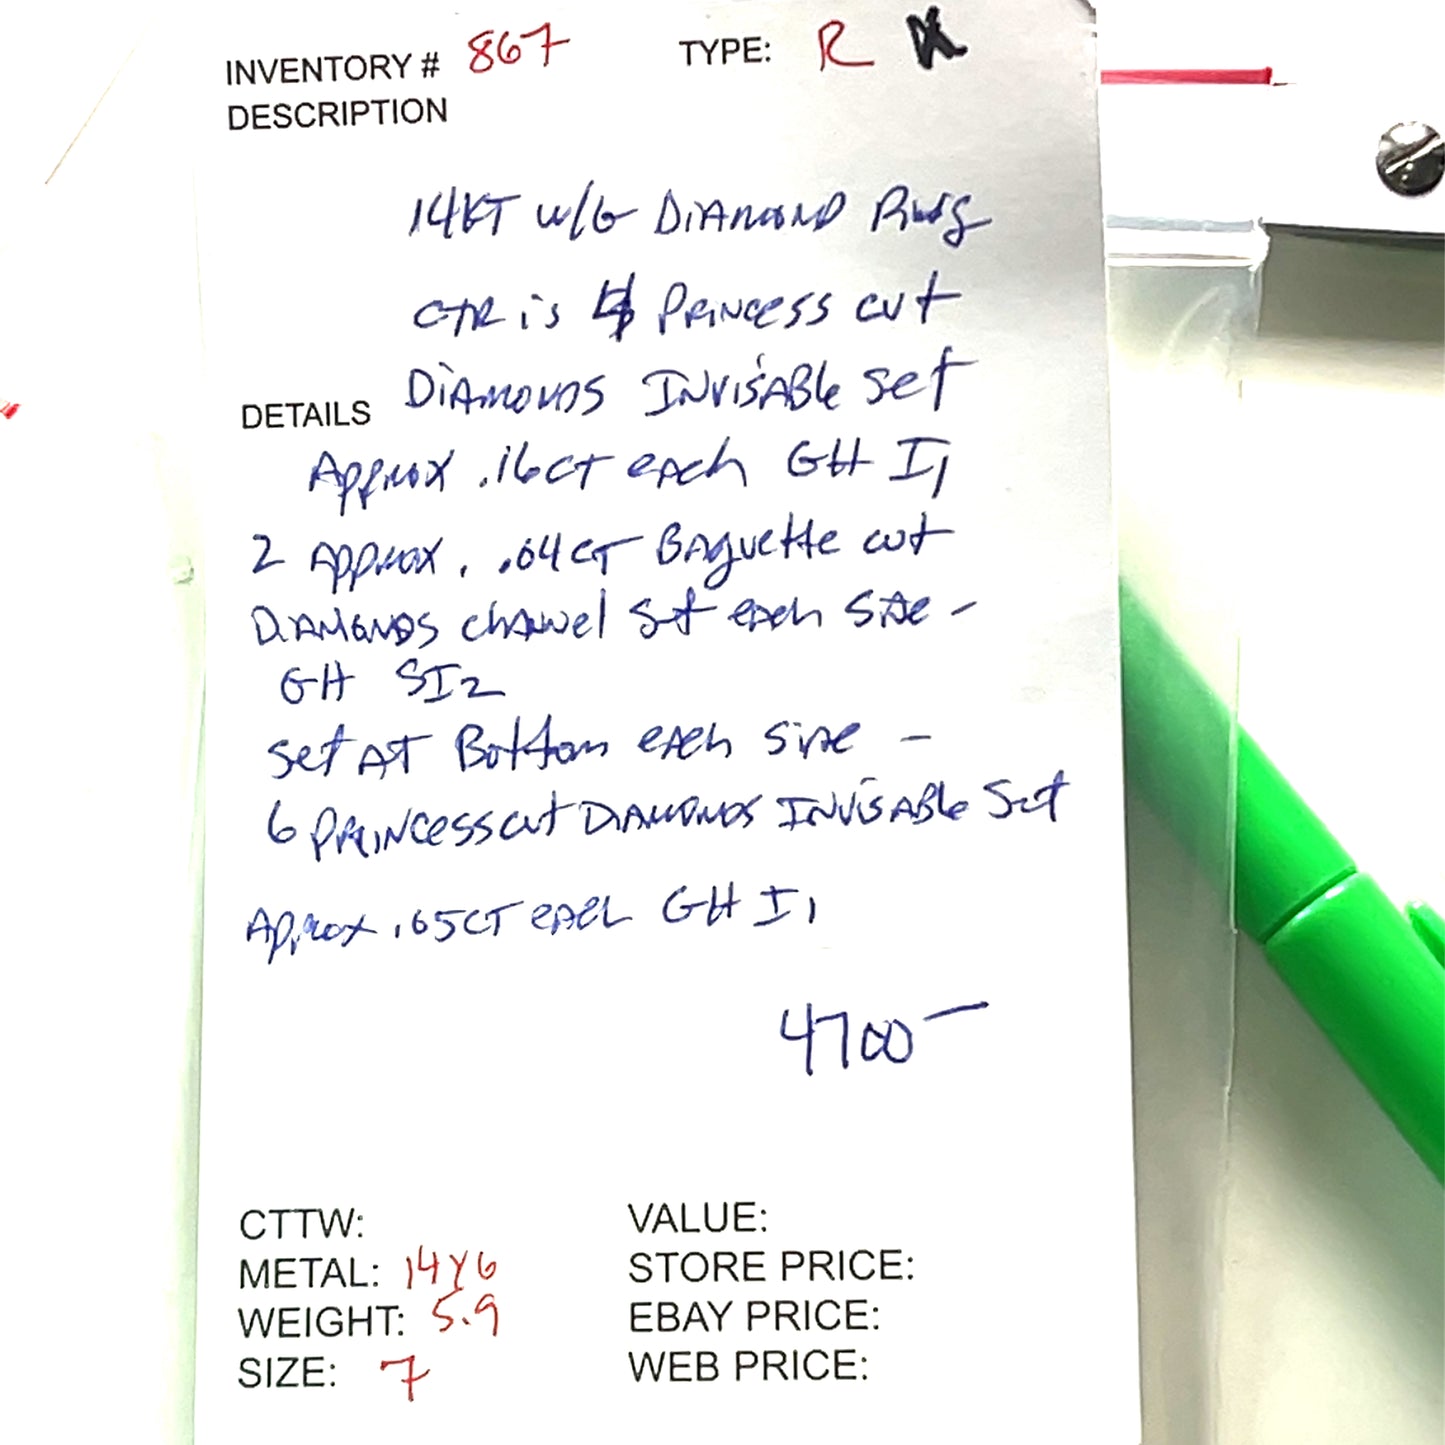 INVENTORY # 867 TYPE: R
DESCRIPTION
14KT w/G DIAMOND RING
CTR is 4 PRINCESS cut
DIAMONDS INVISABLE Set
DETAILS
Approx .16CT each GH I1
2 Approx. .04CT BAguette cut
DIAMONDS chANNel Set each SIDe -
GH SI2
Set AT Bottom each SIDe -
6 PRINCESS cut DIAMONDS INVISABLE Set
Approx .05CT each GH I1
4700-
CTTW:
VALUE:
METAL: 14YG
STORE PRICE:
WEIGHT: 5.9
EBAY PRICE:
SIZE: 7
WEB PRICE: